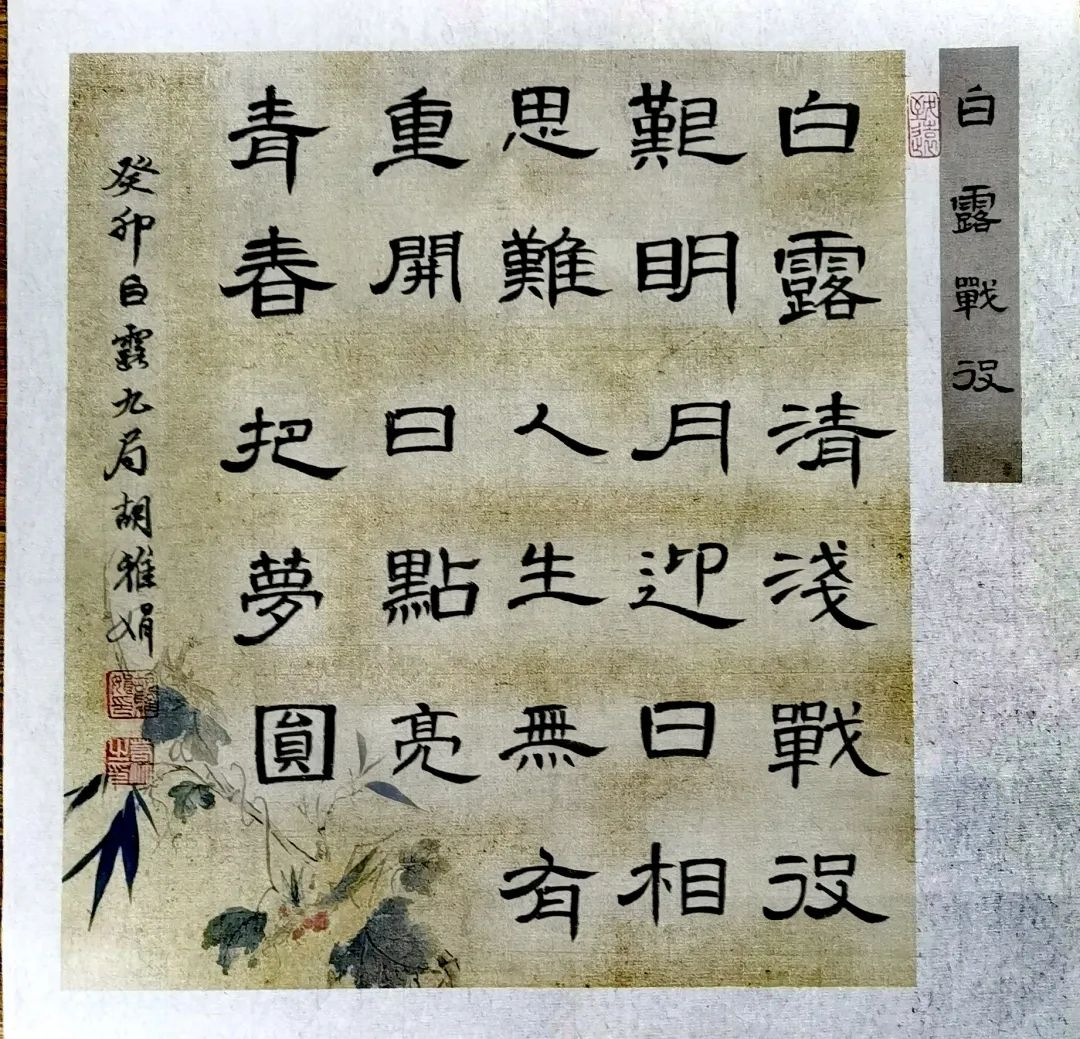 白露戰役
白露清淺戰役
艱明月迎日相
思難人生無有
重開日點亮
青春把夢圓
癸卯白露九局胡雅娟